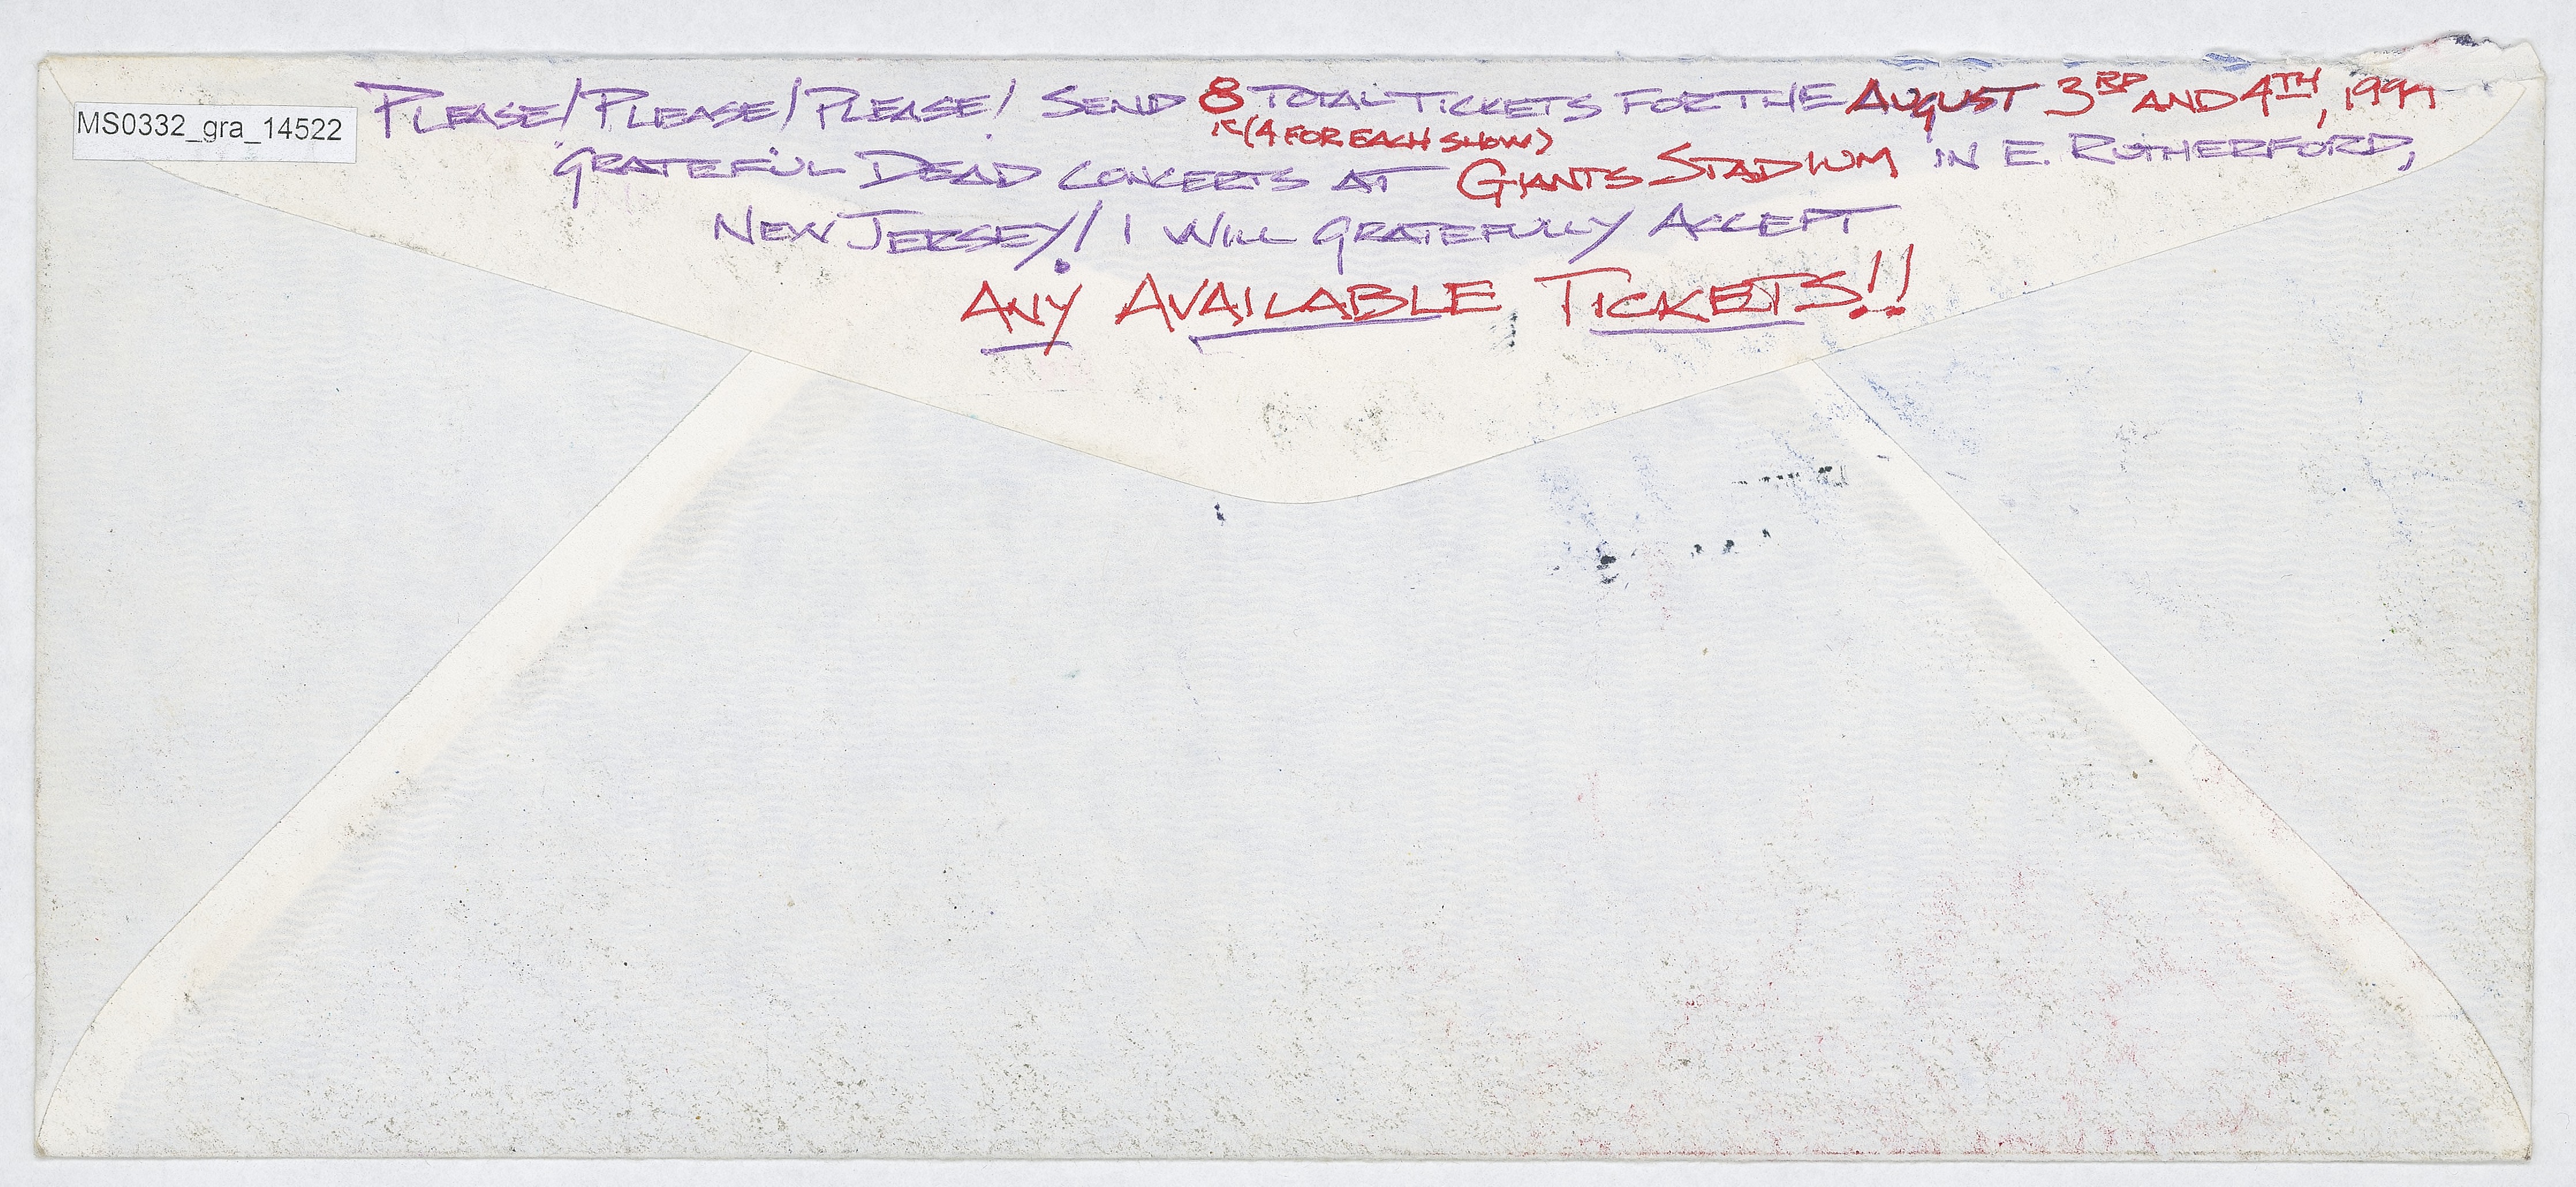 MS0332_gra_14522
PLEASE! PLEASE! PLEASE! SEND 8 TOTAL TICKETS FOR THE AUGUST 3RD AND 4TH, 1994
(4 FOR EACH SHOW)
GRATEFUL DEAD CONCERTS AT GIANTS STADIUM IN E. RUTHERFORD,
NEW JERSEY! I WILL GRATEFULLY ACCEPT
ANY AVAILABLE TICKETS!!